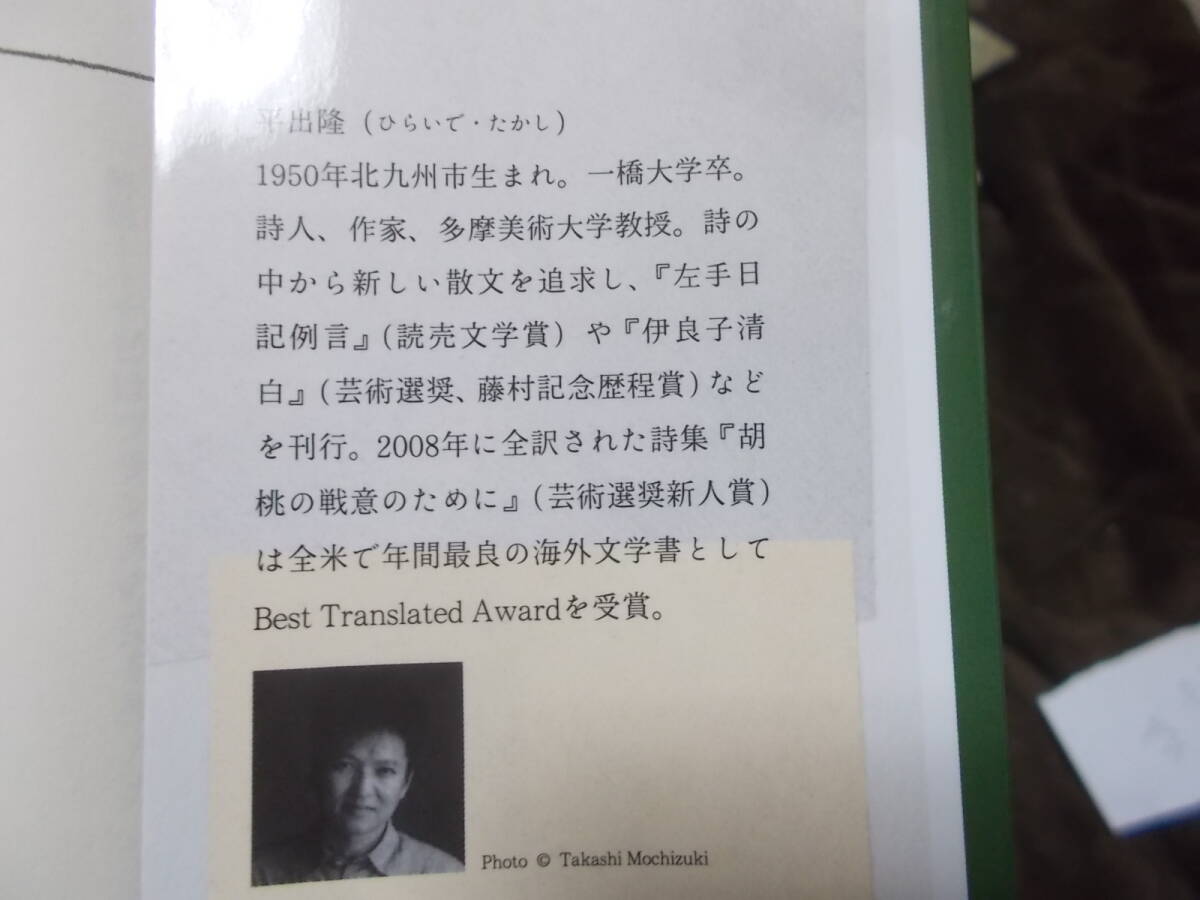 平出隆(ひらいで・たかし)
1950年北九州市生まれ。一橋大学卒。
詩人、作家、多摩美術大学教授。詩の
中から新しい散文を追求し、『左手日
記例言』(読売文学賞)や『伊良子清
白』(芸術選奨、藤村記念歴程賞)など
を刊行。2008年に全訳された詩集『胡
桃の戦意のために』(芸術選奨新人賞)
は全米で年間最良の海外文学書として
Best Translated Awardを受賞。
Photo © Takashi Mochizuki